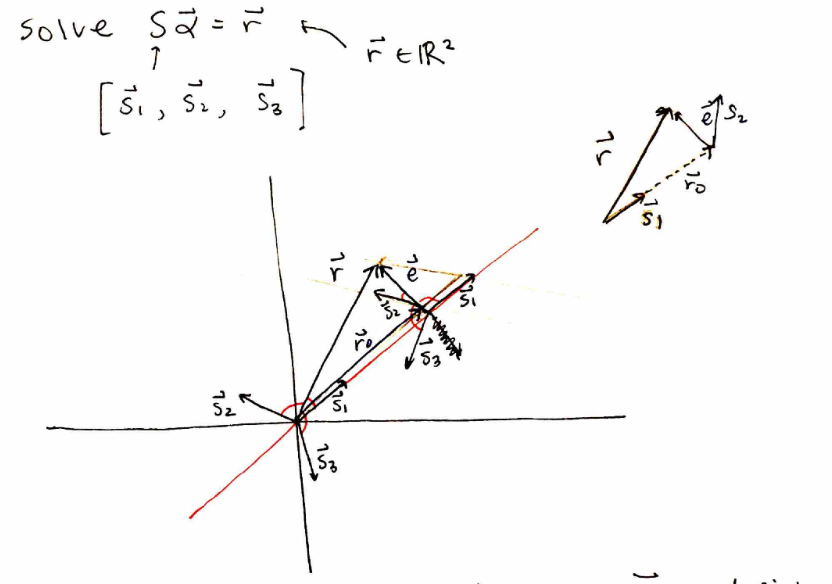 solve Sα⃗ = r⃗
r⃗ ∈ ℝ²
[s⃗₁, s⃗₂, s⃗₃]
r⃗
e⃗
s₂
r⃗₀
s⃗₁
r⃗
e⃗
s⃗₂
s⃗₁
r⃗₀
s⃗₃
s⃗₂
s⃗₁
s⃗₃